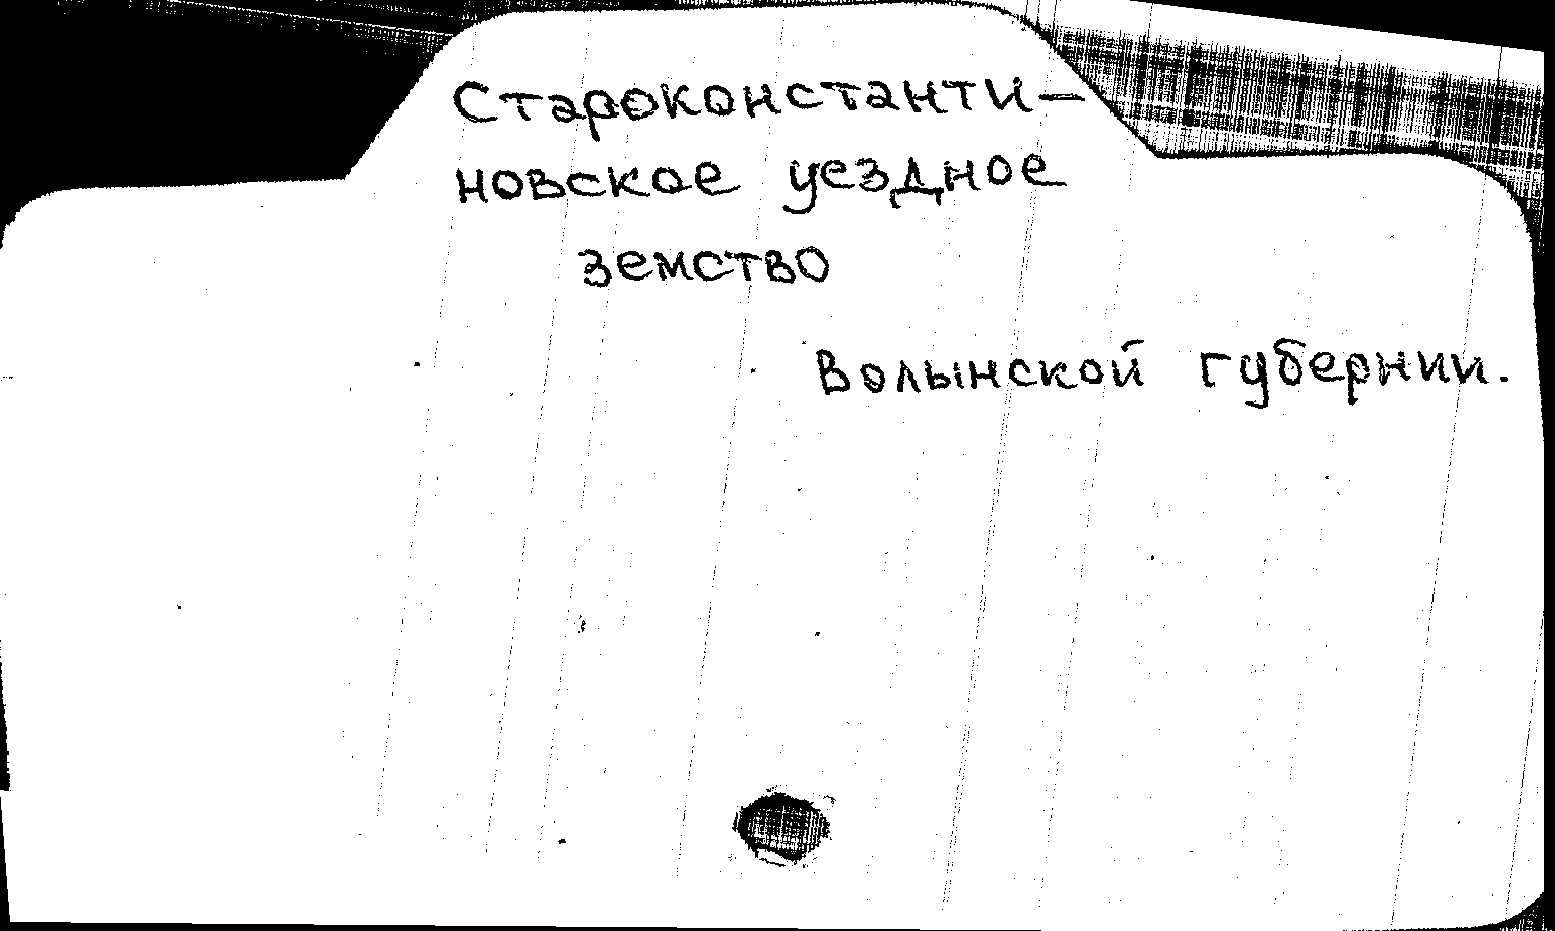 Староконстанти-
новское уездное
земство
Волынской губернии.